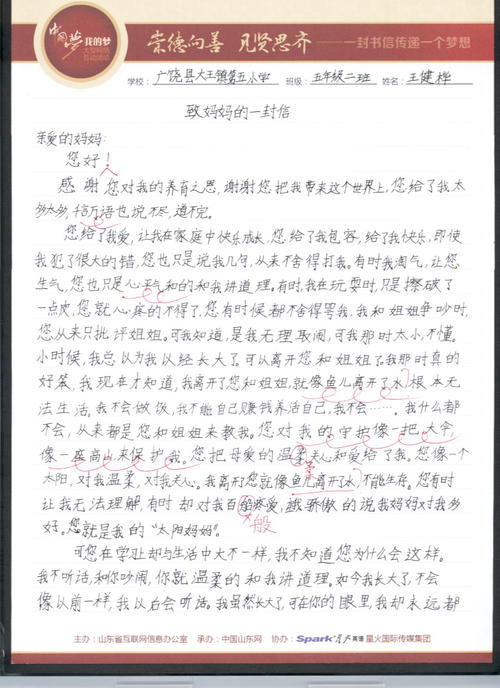 中国梦 我的梦
大型网络
互动活动
崇德向善 见贤思齐 一封书信传递一个梦想
学校:广饶县大王镇第五小学 班级:五年级二班 姓名:王健桦
致妈妈的一封信
亲爱的妈妈:
您好!
感谢您对我的养育之恩,谢谢您把我带来这个世界上,您给了我太
多太多,千言万语也说不尽,道不完。
您给了我爱,让我在家庭中快乐成长,您给了我包容,给了我快乐,即使
我犯了很大的错,您也只是说我几句,从来不舍得打我。有时我淘气,让您
生气,您也只是心平气和的和我讲道理。有时,我在玩耍时,只是擦破了
一点皮,您就心疼的不得了,您有时候都不舍得骂我,我和姐姐争吵时,
您从来只批评姐姐。可我知道,是我无理取闹,可我那时太小,不懂。
小时候,我总以为我以经长大了可以离开您和姐姐了我那时真的
好笨,我现在才知道,我离开了您和姐姐,就像鱼儿离开了水根本无
法生活。我不会做饭,我不能自己赚钱养活自己,我不会……。我什么都
不会,从来都是您和姐姐来教我。您对我的守护像一把大伞,
像一座高山来保护我。您把母爱的温柔关心和爱给了我。您像一个
太阳,对我温柔,对我关心。我离开您就像鱼儿离开了水不能生存。您有时
让我无法理解,有时却对我百般疼爱,我骄傲的说我妈妈对我多
般
好。您就是我的“太阳妈妈”。
可您在学习上却与生活中大不一样,我不知道您为什么会这样。
我不听话,和你吵闹,你就温柔的和我讲道理。如今我长大了,不会
像以前一样,我以后会听话。我虽然长大了,可在你的眼里,我却永远都
主办:山东省互联网信息办公室 承办:中国山东网 协办:Spark 星火英语 星火国际传媒集团